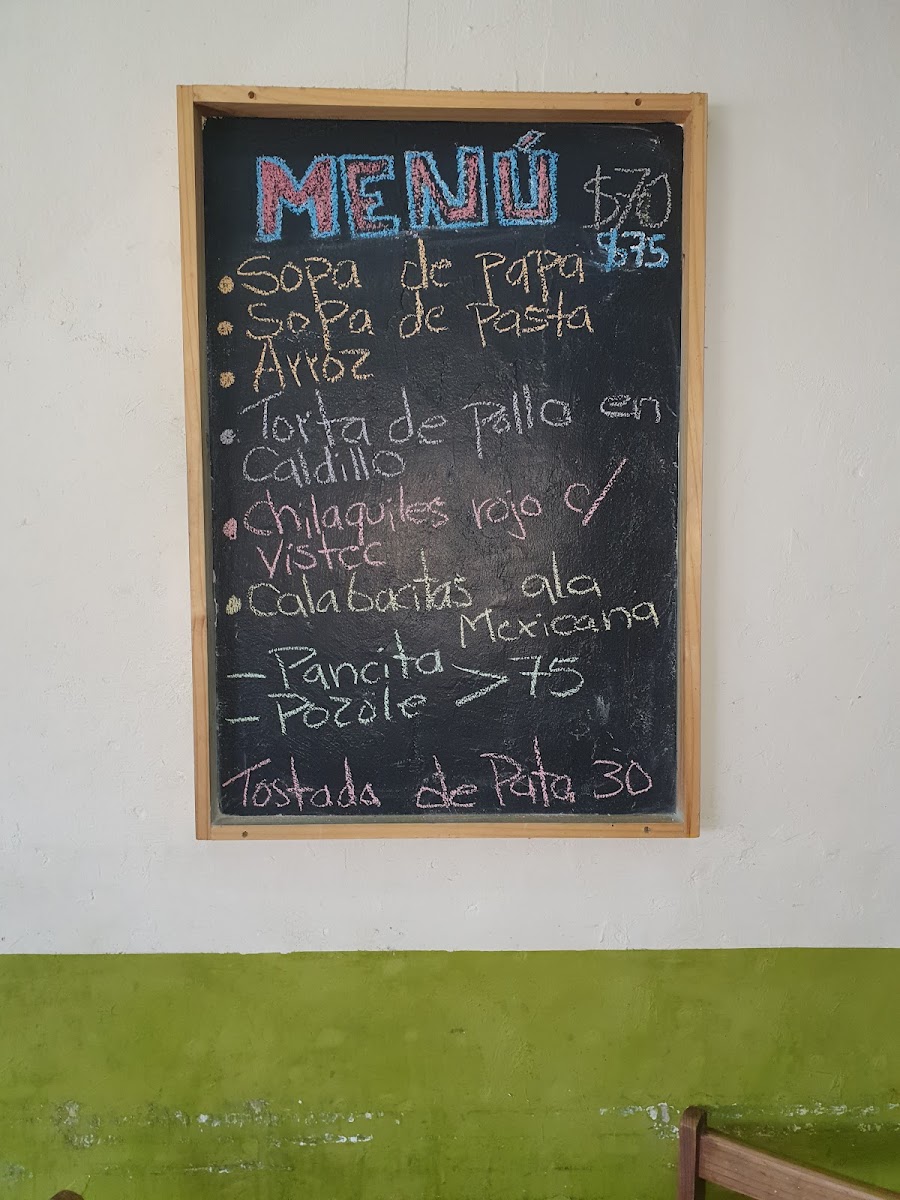 MENÚ $70
$75
• Sopa de papa
• Sopa de pasta
• Arroz
• Torta de pollo en
Caldillo
• Chilaquiles rojo c/
Vistec
• Calabacitas ala
Mexicana
- Pancita > 75
- Pozole
Tostada de Pata 30